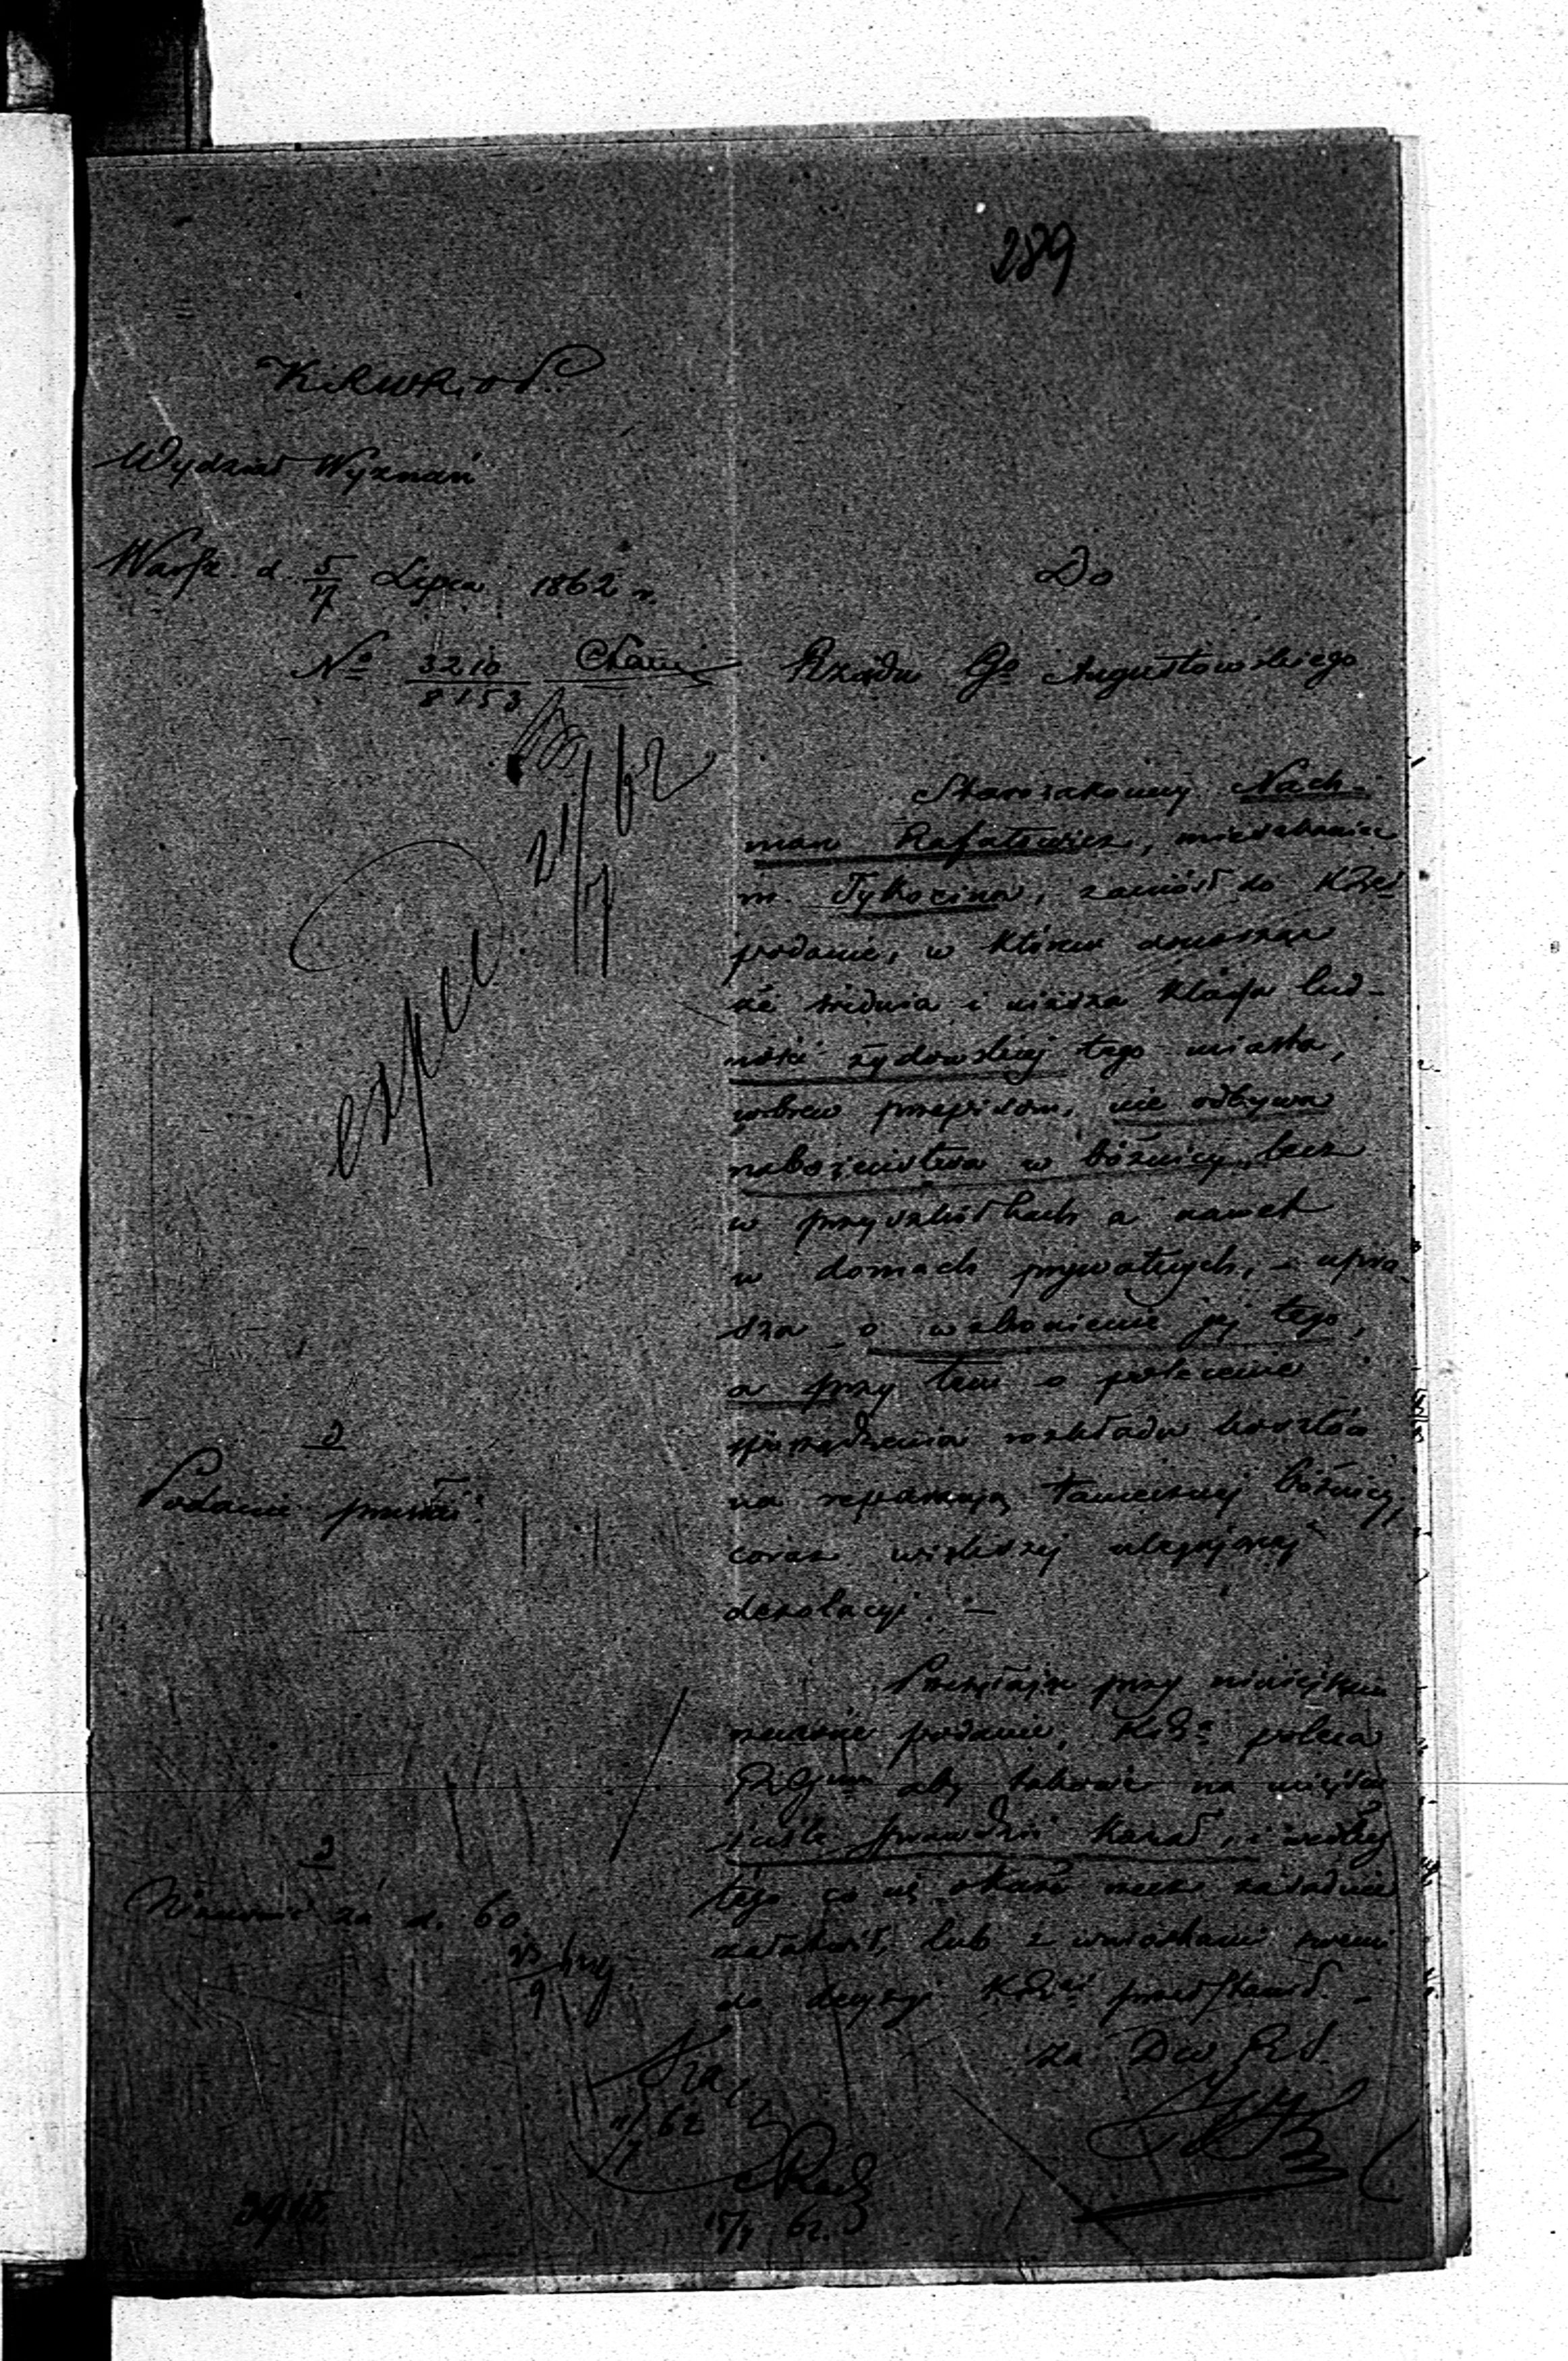 289
Wydział Wyznań
Warsz. d. 5/17 Lipca 1862 r.
Nº 3210
8153
21/7 62
exped.
Do
Rządu Gº Augustowskiego
Starozakonny Nach-
man Rafałowicz, mieszkaniec
m. Tykocina, zaniósł do
podanie, w którem donosząc
że średnia i niższa klassa lud-
ności żydowskiej tego miasta,
wbrew przepisom, nie odbywa
nabożeństwa w bóżnicy, lecz
w przyszkółkach a nawet
w domach prywatnych, – upra-
sza o wzbronienie jej tego,
a przy tem o polecenie
sporządzenia rozkładu kosztów
na reparacyą tamecznej bóżnicy,
coraz większej ulegającej
dezolacyi. –
Podanie
Przesyłając przy niniejszem
rzeczone podanie, poleca
aby takowe na miejscu
ściśle sprawdzić kazał, i według
tego co się okaże rzecz zasadnie
załatwił, lub z wnioskami swemi
do decyzyi przedstawił. –
za d. 60
za Dyr.
11/7 62
15/7 62.